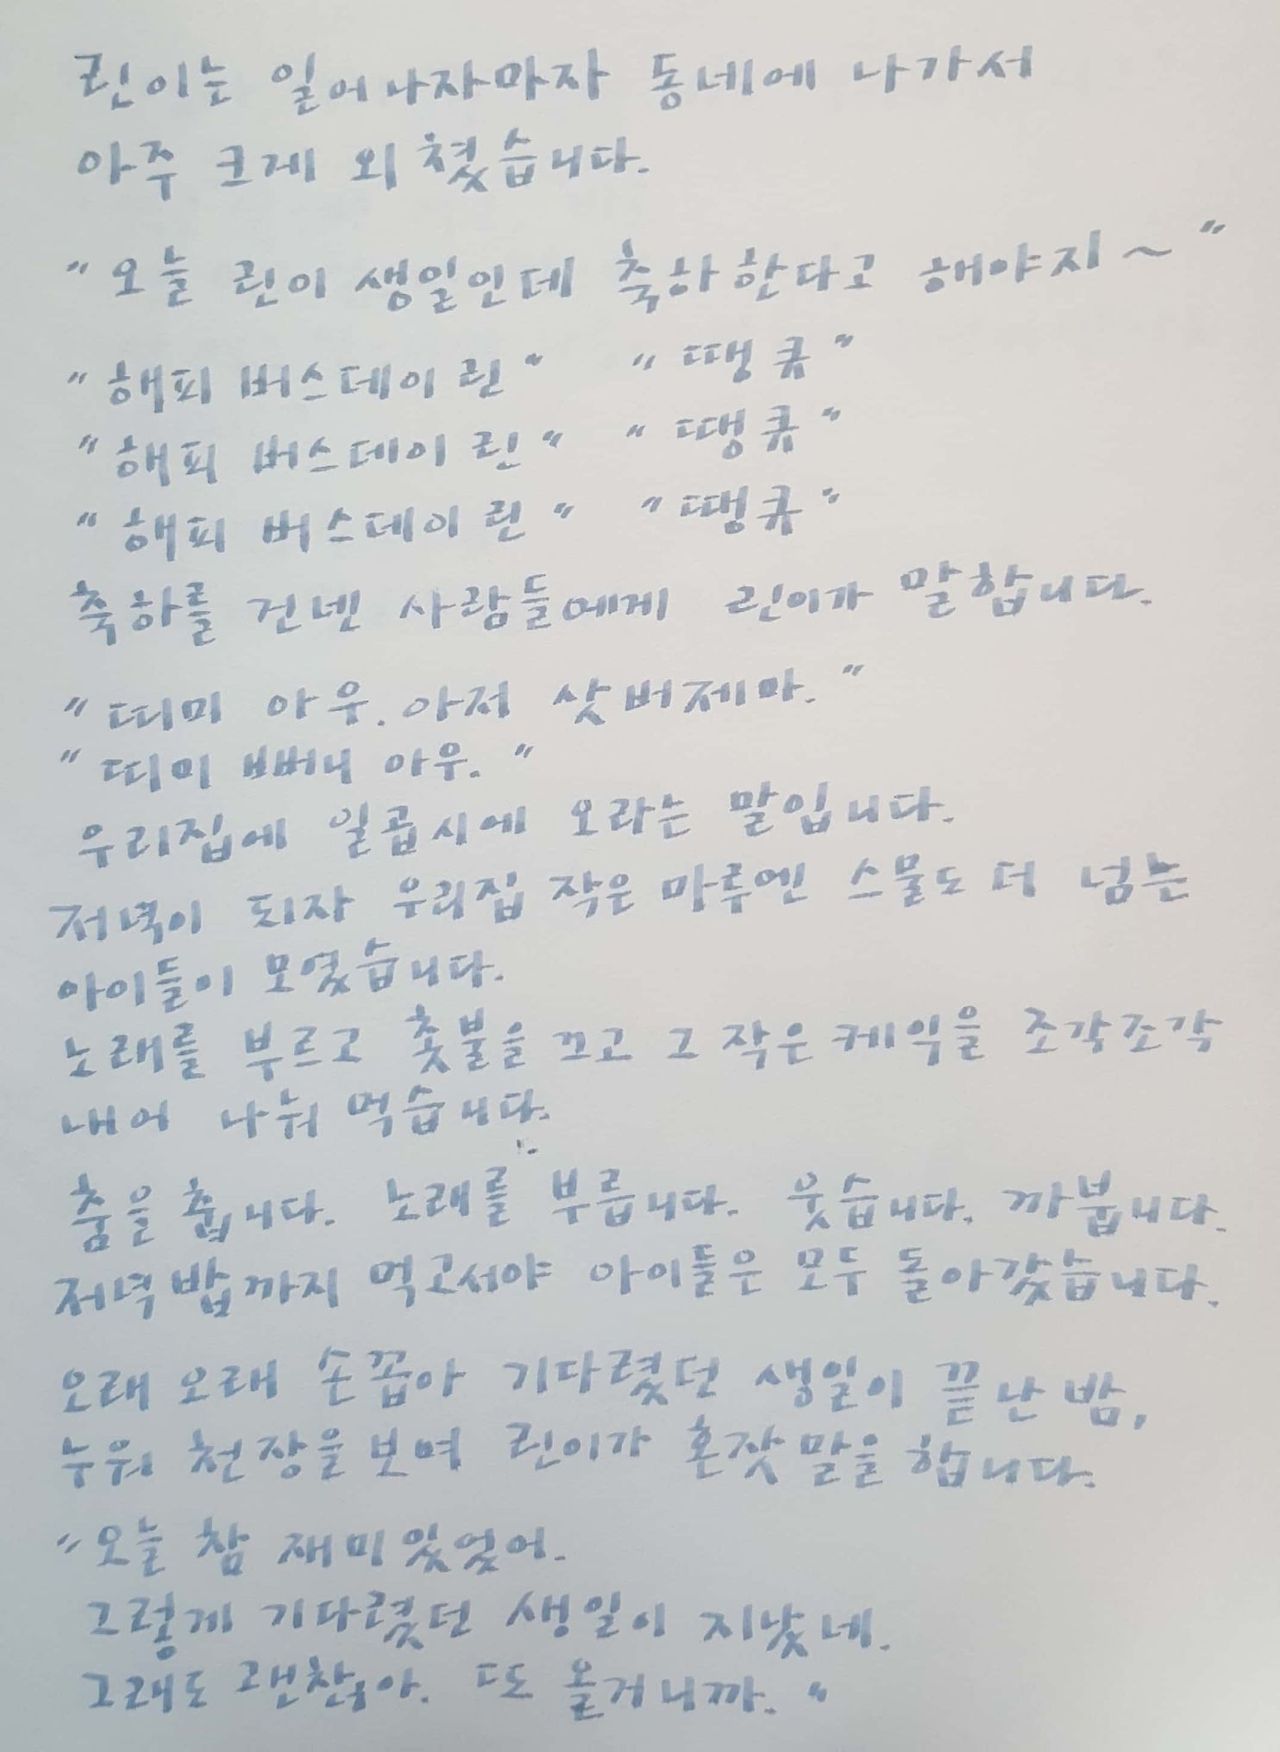 린이는 일어나자마자 동네에 나가서
아주 크게 외쳤습니다.
"오늘 린이 생일인데 축하한다고 해야지~"
"해피 버스데이 린" "땡큐"
"해피 버스데이 린" "땡큐"
"해피 버스데이 린" "땡큐"
축하를 건넨 사람들에게 린이가 말합니다.
"띠미 아우. 아저 삿버제마."
"띠미 뻐니 아우."
우리집에 일곱시에 오라는 말입니다.
저녁이 되자 우리집 작은 마루엔 스물도 더 넘는
아이들이 모였습니다.
노래를 부르고 촛불을 끄고 그 작은 케익을 조각조각
내어 나눠 먹습니다.
춤을 춥니다. 노래를 부릅니다. 웃습니다. 까붑니다.
저녁밥까지 먹고서야 아이들은 모두 돌아갔습니다.
오래 오래 손꼽아 기다렸던 생일이 끝난 밤,
누워 천장을 보며 린이가 혼잣말을 합니다.
"오늘 참 재미있었어.
그렇게 기다렸던 생일이 지났네.
그래도 괜찮아. 또 올거니까."